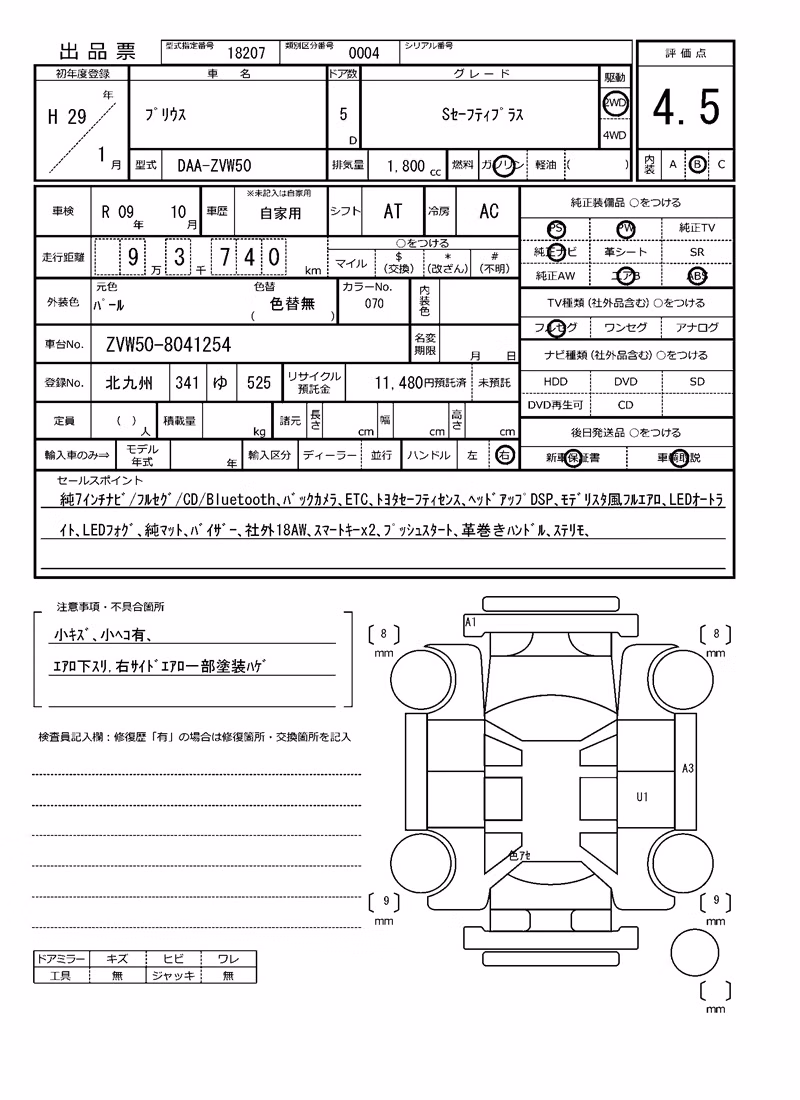 出品票 型式指定番号 18207 類別区分番号 0004 シリアル番号
評価点
4.5
内装 A B C
初年度登録 車名 ドア数 グレード 駆動
H 29 年 1 月
ﾌﾟﾘｳｽ 5 D Sｾｰﾌﾃｨﾌﾟﾗｽ 2WD
4WD
型式 DAA-ZVW50 排気量 1,800 cc 燃料 ガソリン 軽油 ( )
車検 R 09 年 10 月 車歴 ※未記入は自家用 自家用 シフト AT 冷房 AC
走行距離 9 万 3 千 7 4 0 km
○をつける
マイル $ (交換) * (改ざん) # (不明)
外装色 元色 ﾊﾟｰﾙ 色替 色替無 ( ) カラーNo. 070 内装色
車台No. ZVW50-8041254 名変期限 月 日
登録No. 北九州 341 ゆ 525 リサイクル預託金 11,480円預託済 未預託
定員 ( ) 人 積載量 kg 諸元 長さ cm 幅 cm 高さ cm
輸入車のみ⇒ モデル年式 年 輸入区分 ディーラー 並行 ハンドル 左 右
純正装備品 ○をつける
PS PW 純正TV
純正ナビ 革シート SR
純正AW エアB ABS
TV種類 (社外品含む) ○をつける
フルセグ ワンセグ アナログ
ナビ種類 (社外品含む) ○をつける
HDD DVD SD
DVD再生可 CD
後日発送品 ○をつける
新車保証書 車輌取説
セールスポイント
純7ｲﾝﾁﾅﾋﾞ/ﾌﾙｾｸﾞ/CD/Bluetooth､ﾊﾞｯｸｶﾒﾗ､ETC､ﾄﾖﾀｾｰﾌﾃｨｾﾝｽ､ﾍｯﾄﾞｱｯﾌﾟDSP､ﾓﾃﾞﾘｽﾀ風ﾌﾙｴｱﾛ､LEDｵｰﾄﾗ
ｲﾄ､LEDﾌｫｸﾞ､純ﾏｯﾄ､ﾊﾞｲｻﾞｰ､社外18AW､ｽﾏｰﾄｷｰx2､ﾌﾟｯｼｭｽﾀｰﾄ､革巻きﾊﾝﾄﾞﾙ､ｽﾃﾘﾓ､
注意事項・不具合箇所
小ｷｽﾞ､小ﾍｺ有､
ｴｱﾛ下ｽﾘ.右ｻｲﾄﾞｴｱﾛ一部塗装ﾊｹﾞ
検査員記入欄：修復歴「有」の場合は修復箇所・交換箇所を記入
ドアミラー キズ ヒビ ワレ
工具 無 ジャッキ 無
A1
8 mm
8 mm
A3
U1
色ｱｾ
9 mm
9 mm
mm